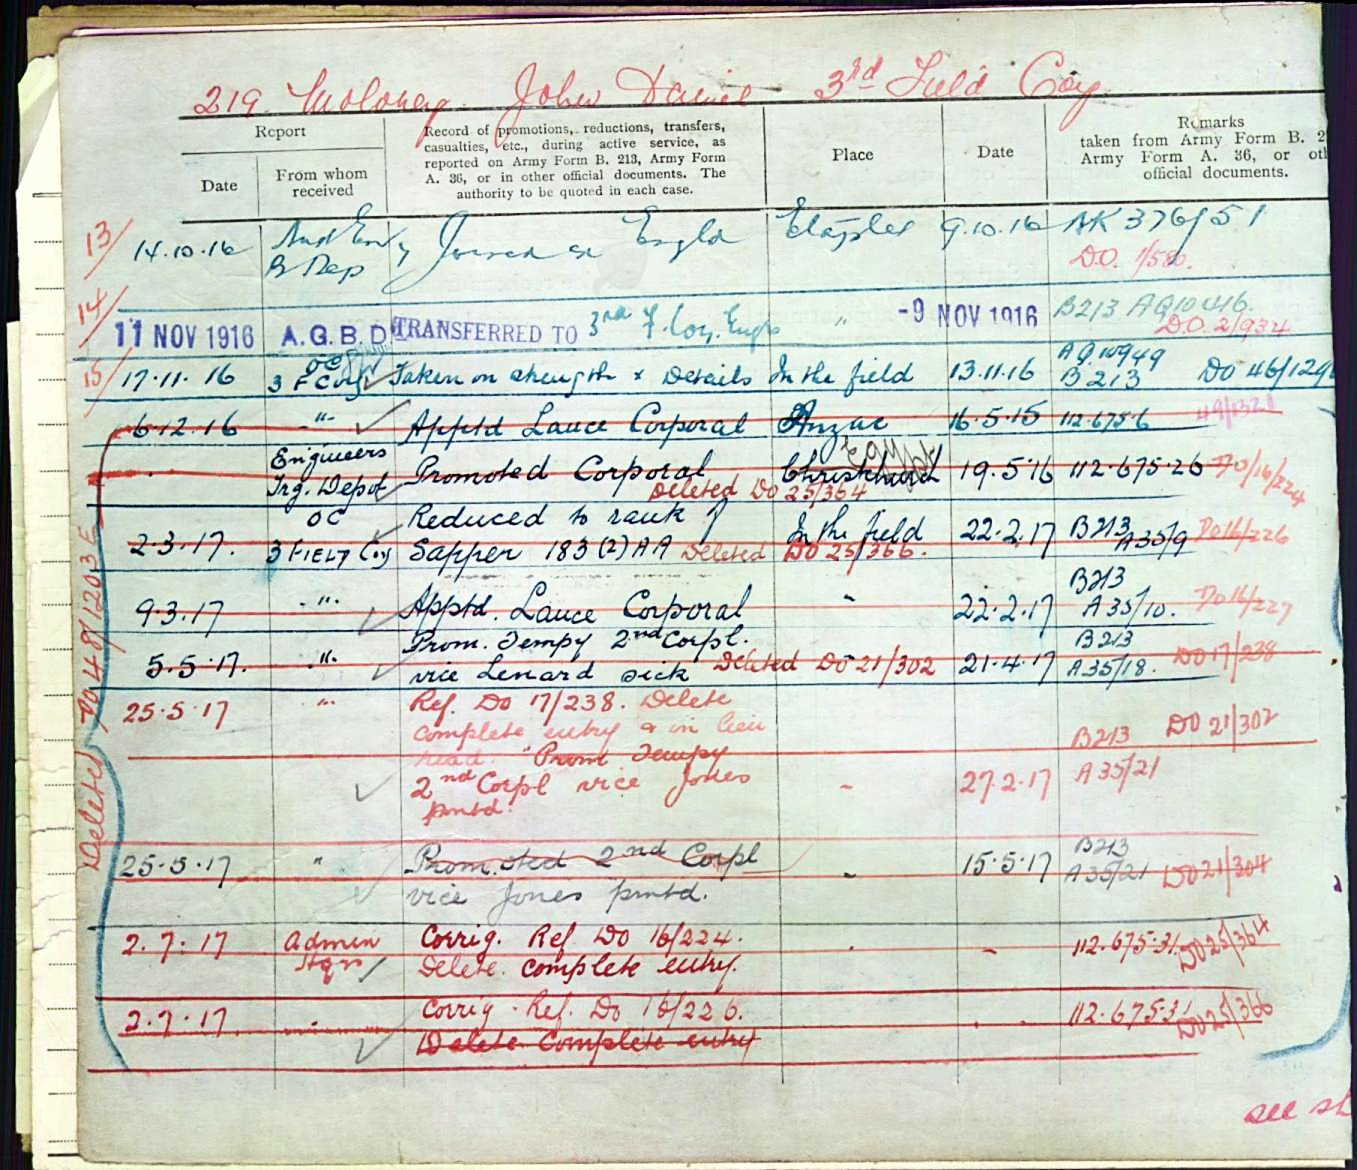 219 Moloney John Daniel 3rd Field Coy
Report
Date
From whom received
Record of promotions, reductions, transfers,
casualties, etc., during active service, as
reported on Army Form B. 213, Army Form
A. 36, or in other official documents. The
authority to be quoted in each case.
Place
Date
Remarks
taken from Army Form B. 2
Army Form A. 36, or oth
official documents.
13/ 14.10.16 Joined ex Engld Etaples 9.10.16 AK 376/51
B Dep D.O. 1/580.
14/ B213
11 NOV 1916 A.G.B.D TRANSFERRED TO 3rd F. Coy. Engrs " -9 NOV 1916 D.O. 2/934
OC AQ10949
15/ 17.11.16 3 F Coy Taken on strength & Details In the field 13.11.16 B213 DO 46/129
6.12.16 -"- Apptd Lance Corporal Anzac 16.5.15 112.675.6 49/1321
Engineers Egypt
Trg. Depot Promoted Corporal Christchurch 19.5.16 112.675.26 DO/16/224
Deleted DO 25/364
OC Reduced to rank of In the field 22.2.17 B213
2.3.17. 3 FIELD Coy Sapper 183(2)AA Deleted DO 25/366. A35/9 DO16/226
B213
9.3.17 -"- Apptd. Lance Corporal " 22.2.17 A35/10. DO16/227
Prom. Tempy 2nd Corpl. B213
5.5.17. -"- vice Lenard sick Deleted DO 21/302 21.4.17 A35/18. DO17/238
25.5.17 -"- Ref. DO 17/238. Delete
complete entry & in lieu DO 21/302
read. "Prom Tempy B213
2nd Corpl vice Jones - 27.2.17 A35/21
pmtd.
B213
25.5.17 " Promoted 2nd Corpl - 15.5.17 A35/21 DO21/304
vice Jones pmtd.
2.7.17 Admin Corrig. Ref DO 16/224. - 112.675.31 DO25/364
Hqrs Delete complete entry.
2.7.17 Corrig. Ref. DO 16/226. 112.675.31 DO25/366
Delete Complete entry
Deleted DO 48/1203 E
see sh